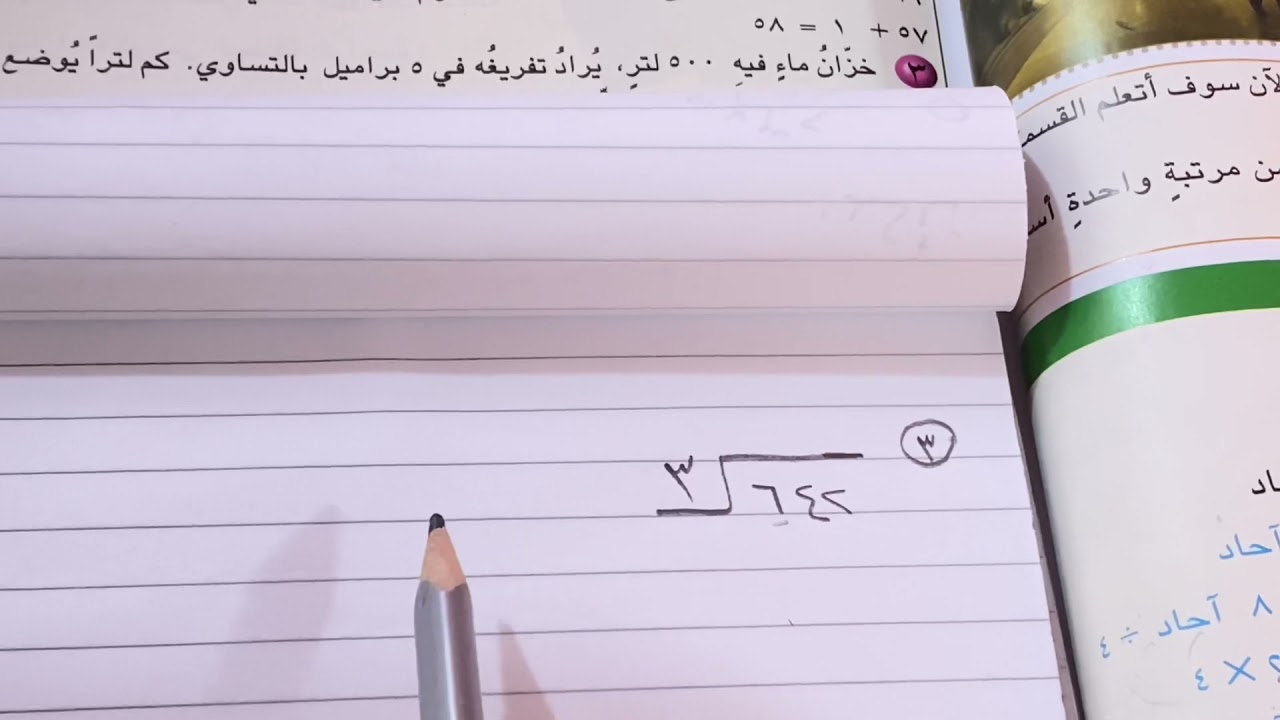 ٥٧ + ١ = ٥٨
٣ خزّانُ ماءٍ فيهِ ٥٠٠ لترٍ، يُرادُ تفريغُه في ٥ براميل بالتساوي. كم لتراً يُوضع
لآن سوف أتعلم القسم
من مرتبةٍ واحدةٍ
٣
٣ ٦٤٢
آحاد
٨ آحاد ÷ ٤
× ٤